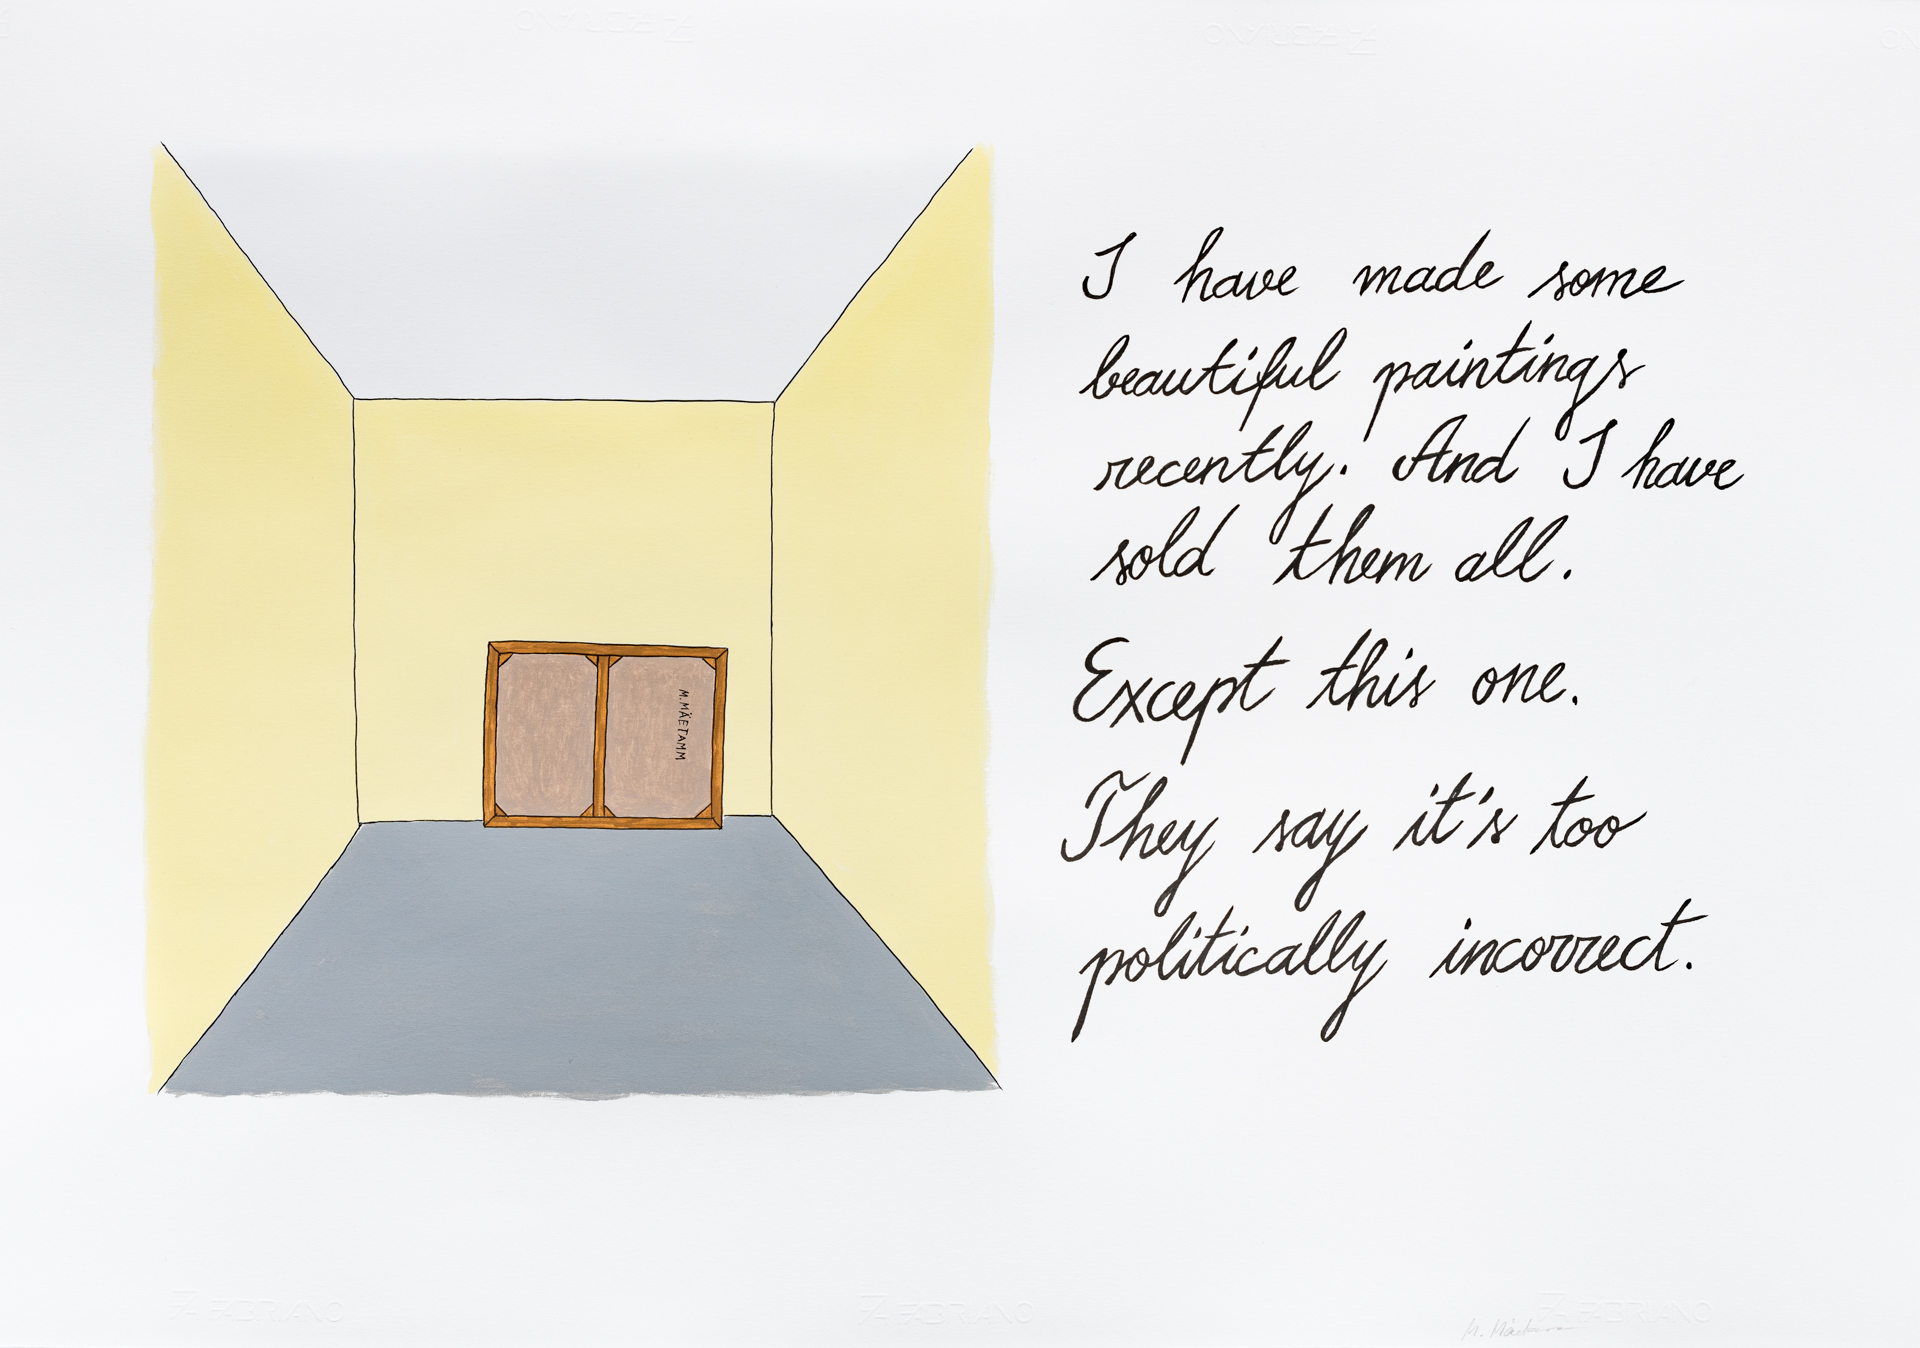 FABRIANO
FABRIANO
I have made some
beautiful paintings
recently. And I have
sold them all.
Except this one.
They say it's too
politically incorrect.
M.MÄETAMM
FABRIANO
FABRIANO
FABRIANO